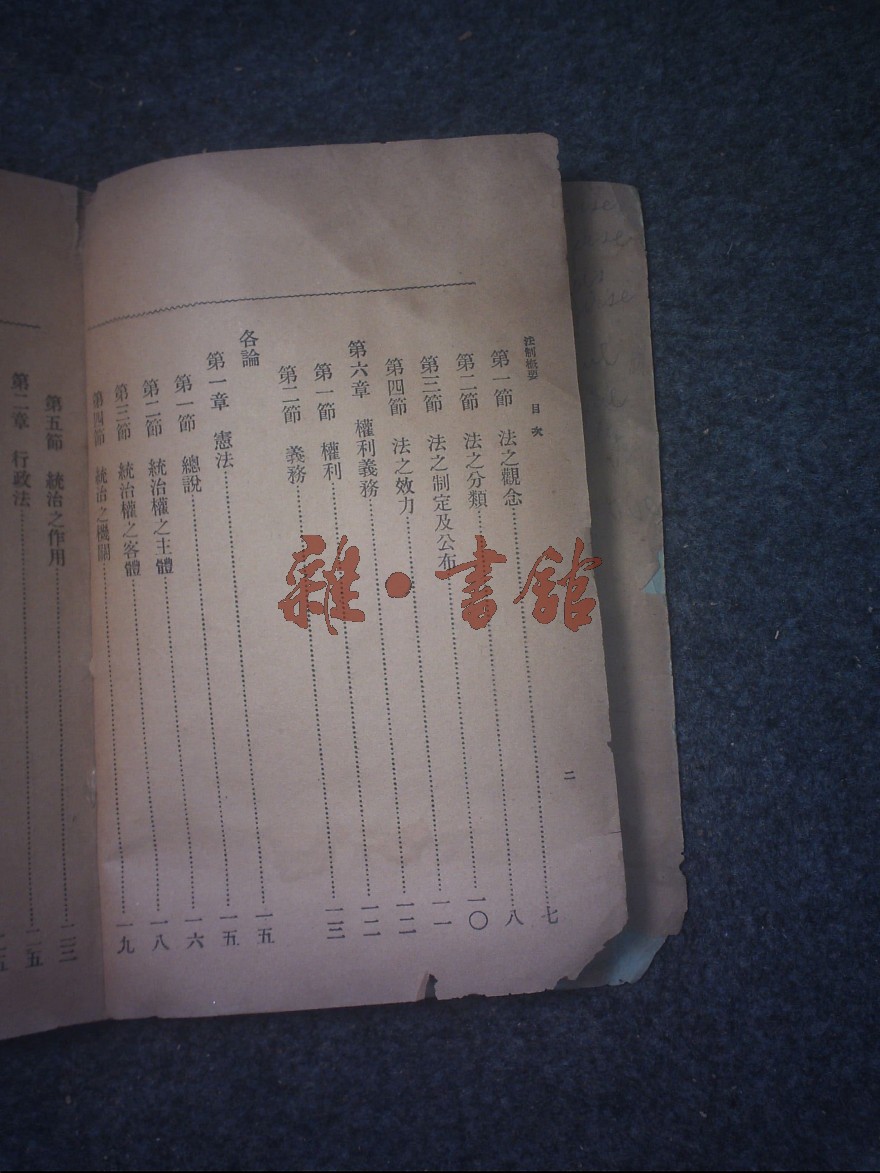 法制概要　目次
二
第一節　法之觀念……七
第二節　法之分類……八
第三節　法之制定及公布……一〇
第四節　法之效力……一一
第六章　權利義務……一二
第一節　權利……一二
第二節　義務……一三
各論
第一章　憲法……一五
第一節　總說……一五
第二節　統治權之主體……一六
第三節　統治權之客體……一八
第四節　統治之機關……一九
第五節　統治之作用……二三
第二章　行政法……二五
雜・書館